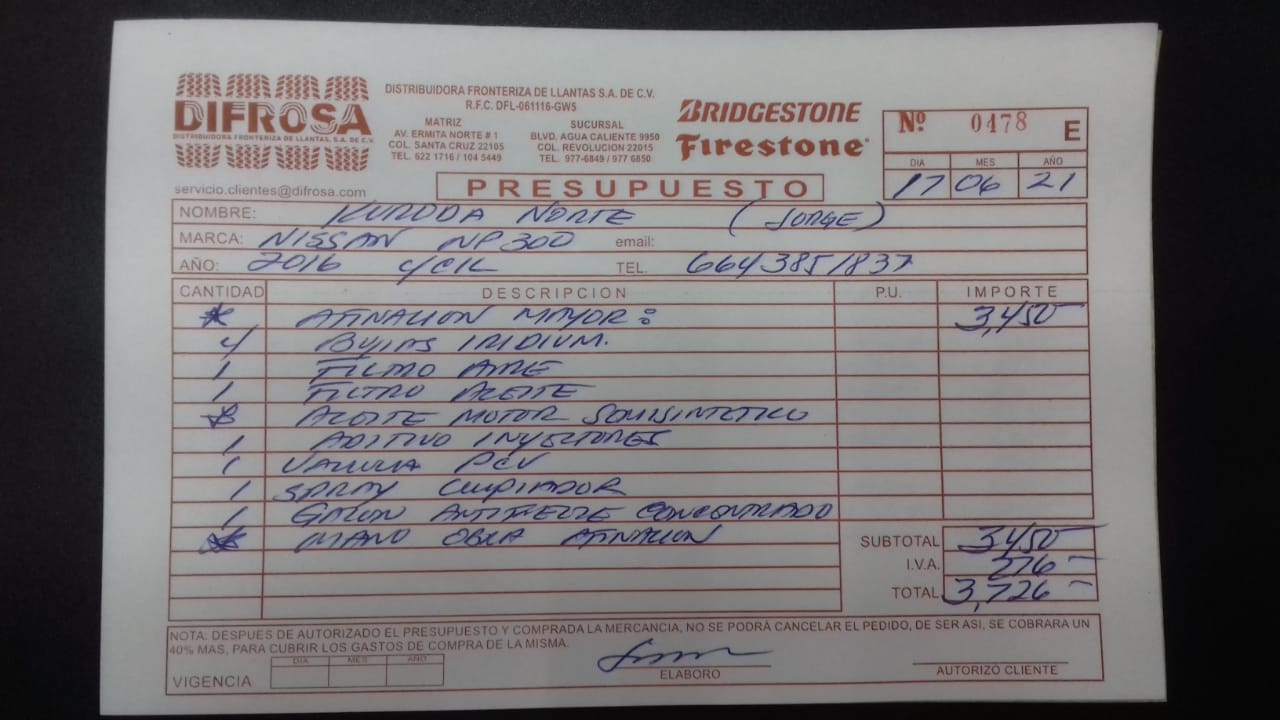 DIFROSA
DISTRIBUIDORA FRONTERIZA DE LLANTAS, S.A. DE C.V.
servicio.clientes@difrosa.com
DISTRIBUIDORA FRONTERIZA DE LLANTAS S.A. DE C.V.
R.F.C. DFL-061116-GW5
MATRIZ
AV. ERMITA NORTE # 1
COL. SANTA CRUZ 22105
TEL. 622 1716 / 104 5449
SUCURSAL
BLVD. AGUA CALIENTE 9950
COL. REVOLUCION 22015
TEL. 977-6849 / 977 6850
BRIDGESTONE
Firestone
Nº 0478 E
DIA MES AÑO
17 06 21
PRESUPUESTO
NOMBRE: KURODA NORTE (JORGE)
MARCA: NISSAN NP300 email:
AÑO: 2016 4/CIL TEL. 6643851837
CANTIDAD DESCRIPCION P.U. IMPORTE
* AFINACION MAYOR: 3,450
4 BUJIAS IRIDIUM.
1 FILTRO AIRE
1 FILTRO ACEITE
ACEITE MOTOR SEMISINTETICO
1 ADITIVO INYECTORES
1 VALVULA PCV
1 SPRAY LIMPIADOR
1 GALON ANTIFREEZE CONCENTRADO
* MANO OBRA AFINACION
SUBTOTAL 3450
I.V.A. 276
TOTAL 3,726
NOTA: DESPUES DE AUTORIZADO EL PRESUPUESTO Y COMPRADA LA MERCANCIA, NO SE PODRÁ CANCELAR EL PEDIDO, DE SER ASI, SE COBRARA UN
40% MAS, PARA CUBRIR LOS GASTOS DE COMPRA DE LA MISMA.
DIA MES AÑO
VIGENCIA
ELABORO
AUTORIZO CLIENTE